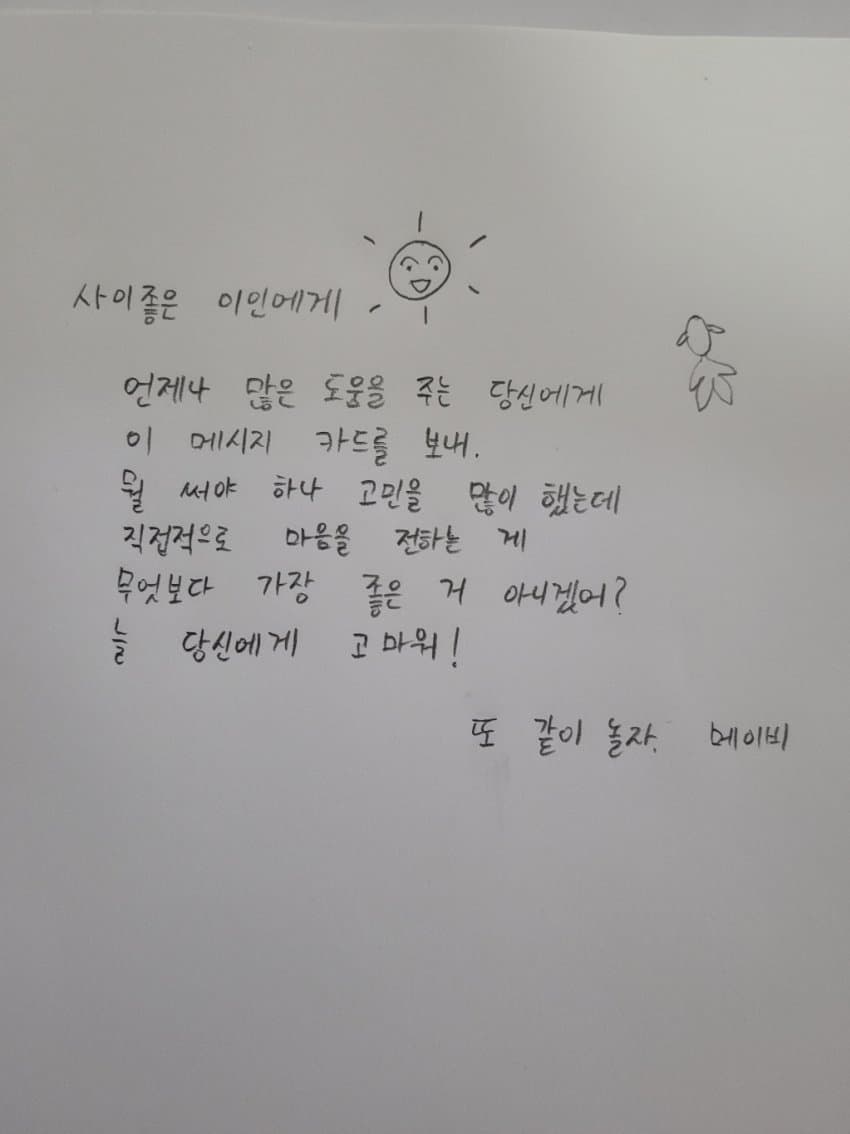 사이좋은 이인에게
언제나 많은 도움을 주는 당신에게
이 메시지 카드를 보내.
뭘 써야 하나 고민을 많이 했는데
직접적으로 마음을 전하는 게
무엇보다 가장 좋은 거 아니겠어?
늘 당신에게 고마워!
또 같이 놀자. 메이비